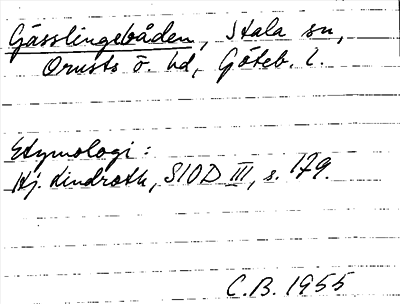 Gässlingebåden, Stala sn,
Orusts ö. hd, Göteb. l.
Etymologi:
Hj. Lindroth, SIOD III, s. 179.
C.B. 1955